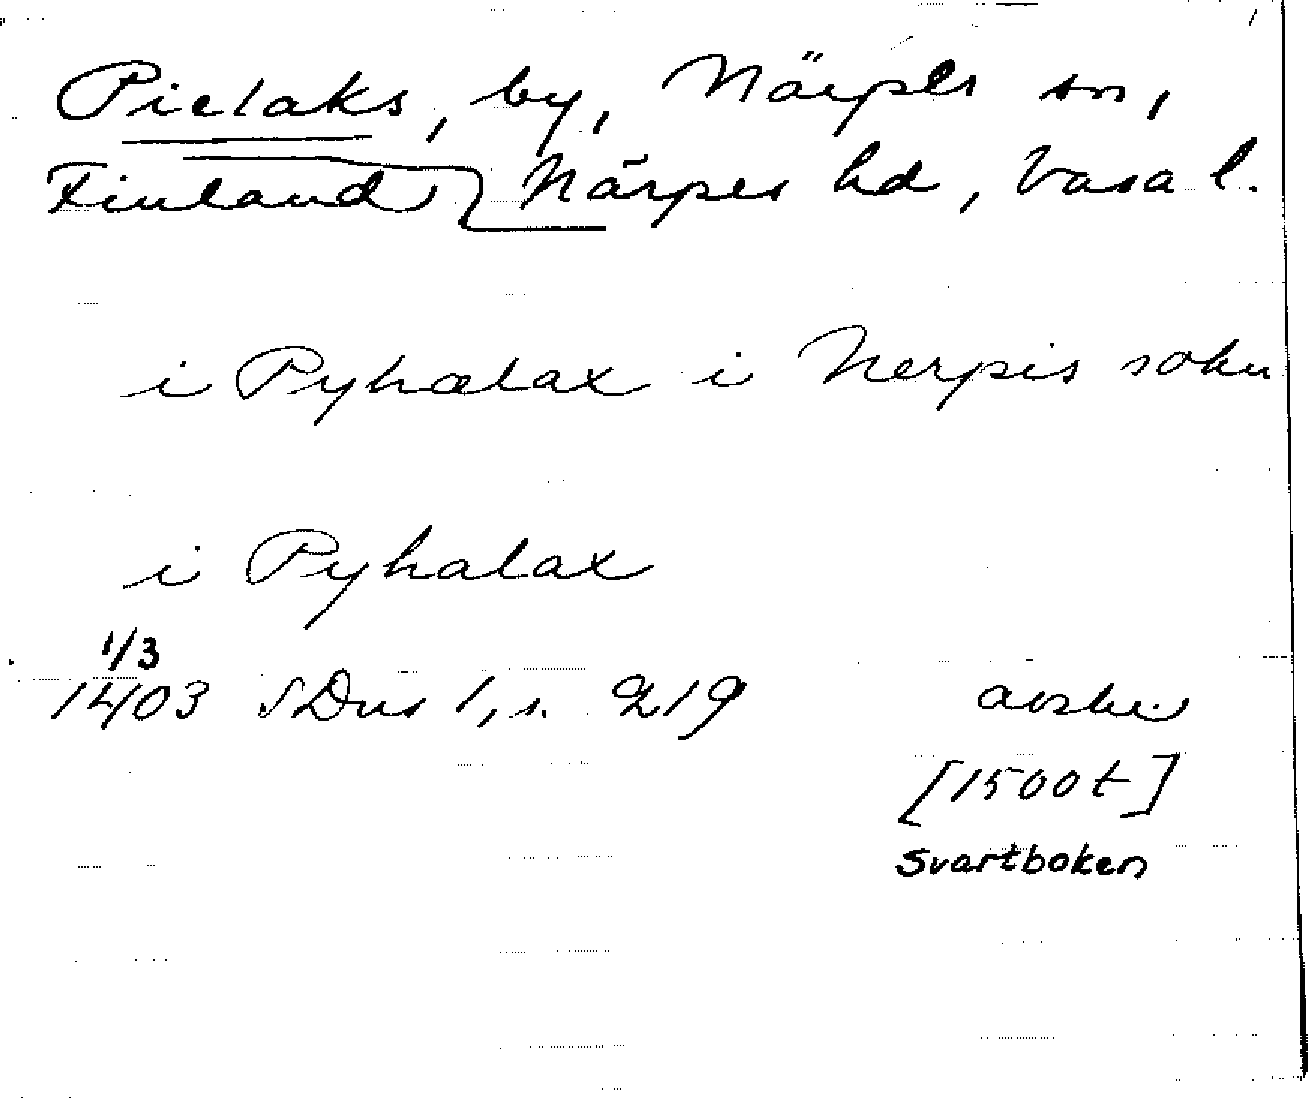 Pielaks, by, Närpes sn,
Finland Närpes hd, Vasa l.
i Pyhælax i Nerpis sokn
i Pyhalax
1/3
1403 SDns 1, s. 219 avskr.
[1500t]
Svartboken